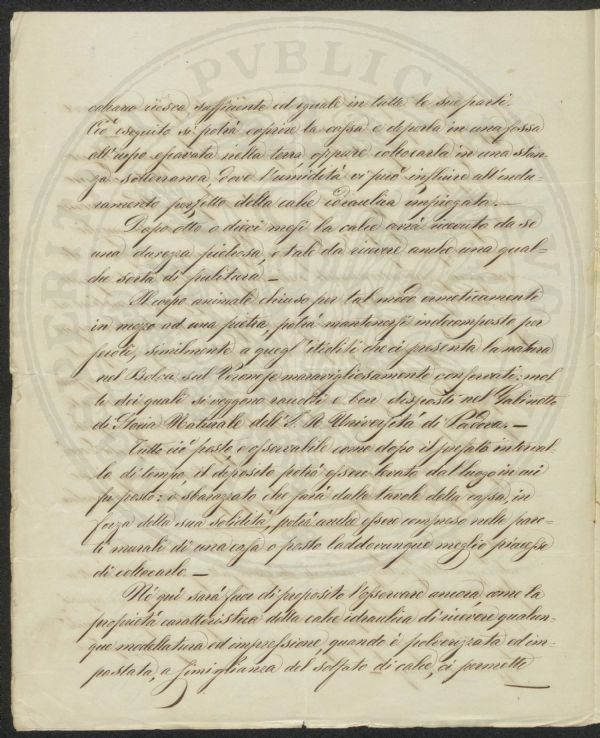 riesca sufficiente ed eguale in tutte le sue parti.
Ciò eseguito si potrà coprire la cassa e deporla in una fossa
all'uopo escavata nella terra oppure collocarla in una stan-
za sotterranea dove l'umidità vi può influire all'indu-
ramento perfetto della calce idraulica impiegata. —
Dopo otto o dieci mesi la calce avrà ricevuto da se
una durezza pietrosa, e tale da ricevere anche una qual-
che sorta di pulitura. —
Il corpo animale chiuso per tal modo ermeticamente
in mezzo ad una pietra, potrà mantenersi indecomposto per
secoli, similmente a quegl'ittioliti che ci presenta la natura
nel Bolca sul Veronese maravigliosamente conservati; mol-
ti dei quali si veggono raccolti e ben disposti nel Gabinetto
di Storia Naturale dell'I. R. Università di Padova. —
Tutto ciò posto, è osservabile come dopo il prefato interval-
lo di tempo, il deposito potrà essere levato dal luogo in cui
fu posto: e sbarazzato che sarà dalle tavole della cassa, in
forza della sua solidità, potrà anche essere compreso nelle pare-
ti murali di una casa o posto laddovunque meglio piacesse
di collocarlo. —
Nè qui sarà fuor di proposito l'osservare ancora come la
proprietà caratteristica della calce idraulica di ricevere qualun-
que modellatura ed impressione, quando è polverizzata ed im-
pastata, a simiglianza del solfato di calce, ci permette
PVBLIC